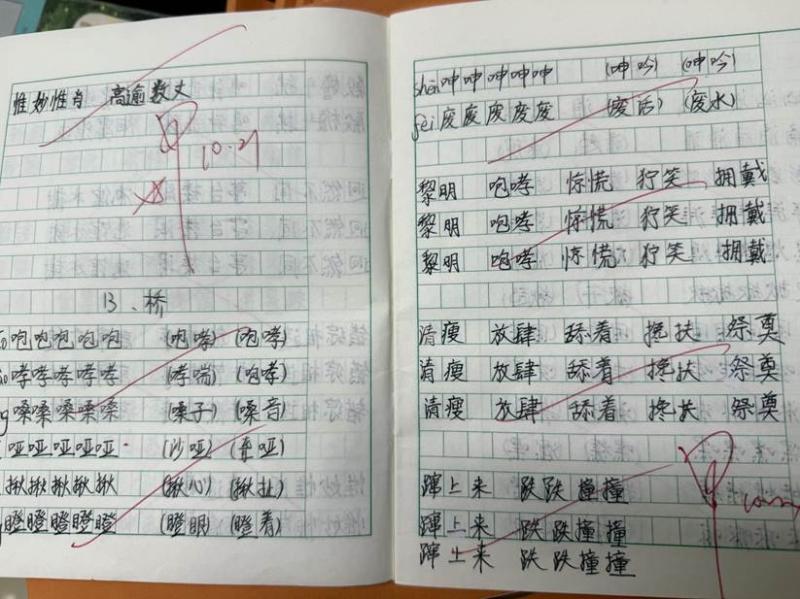 惟妙惟肖 高逾数丈
10.21
13、桥
咆咆咆咆咆 (咆哮) (咆哮)
哮哮哮哮哮 (哮喘) (咆哮)
嗓嗓嗓嗓嗓 (嗓子) (嗓音)
哑哑哑哑哑 (沙哑) (聋哑)
揪揪揪揪揪 (揪心) (揪扯)
瞪瞪瞪瞪瞪 (瞪眼) (瞪着)
shēn呻呻呻呻呻 (呻吟) (呻吟)
fèi废废废废废 (废话) (废水)
黎明 咆哮 惊慌 狞笑 拥戴
黎明 咆哮 惊慌 狞笑 拥戴
黎明 咆哮 惊慌 狞笑 拥戴
清瘦 放肆 舔着 搀扶 祭奠
清瘦 放肆 舔着 搀扶 祭奠
清瘦 放肆 舔着 搀扶 祭奠
蹿上来 跌跌撞撞
蹿上来 跌跌撞撞
蹿上来 跌跌撞撞